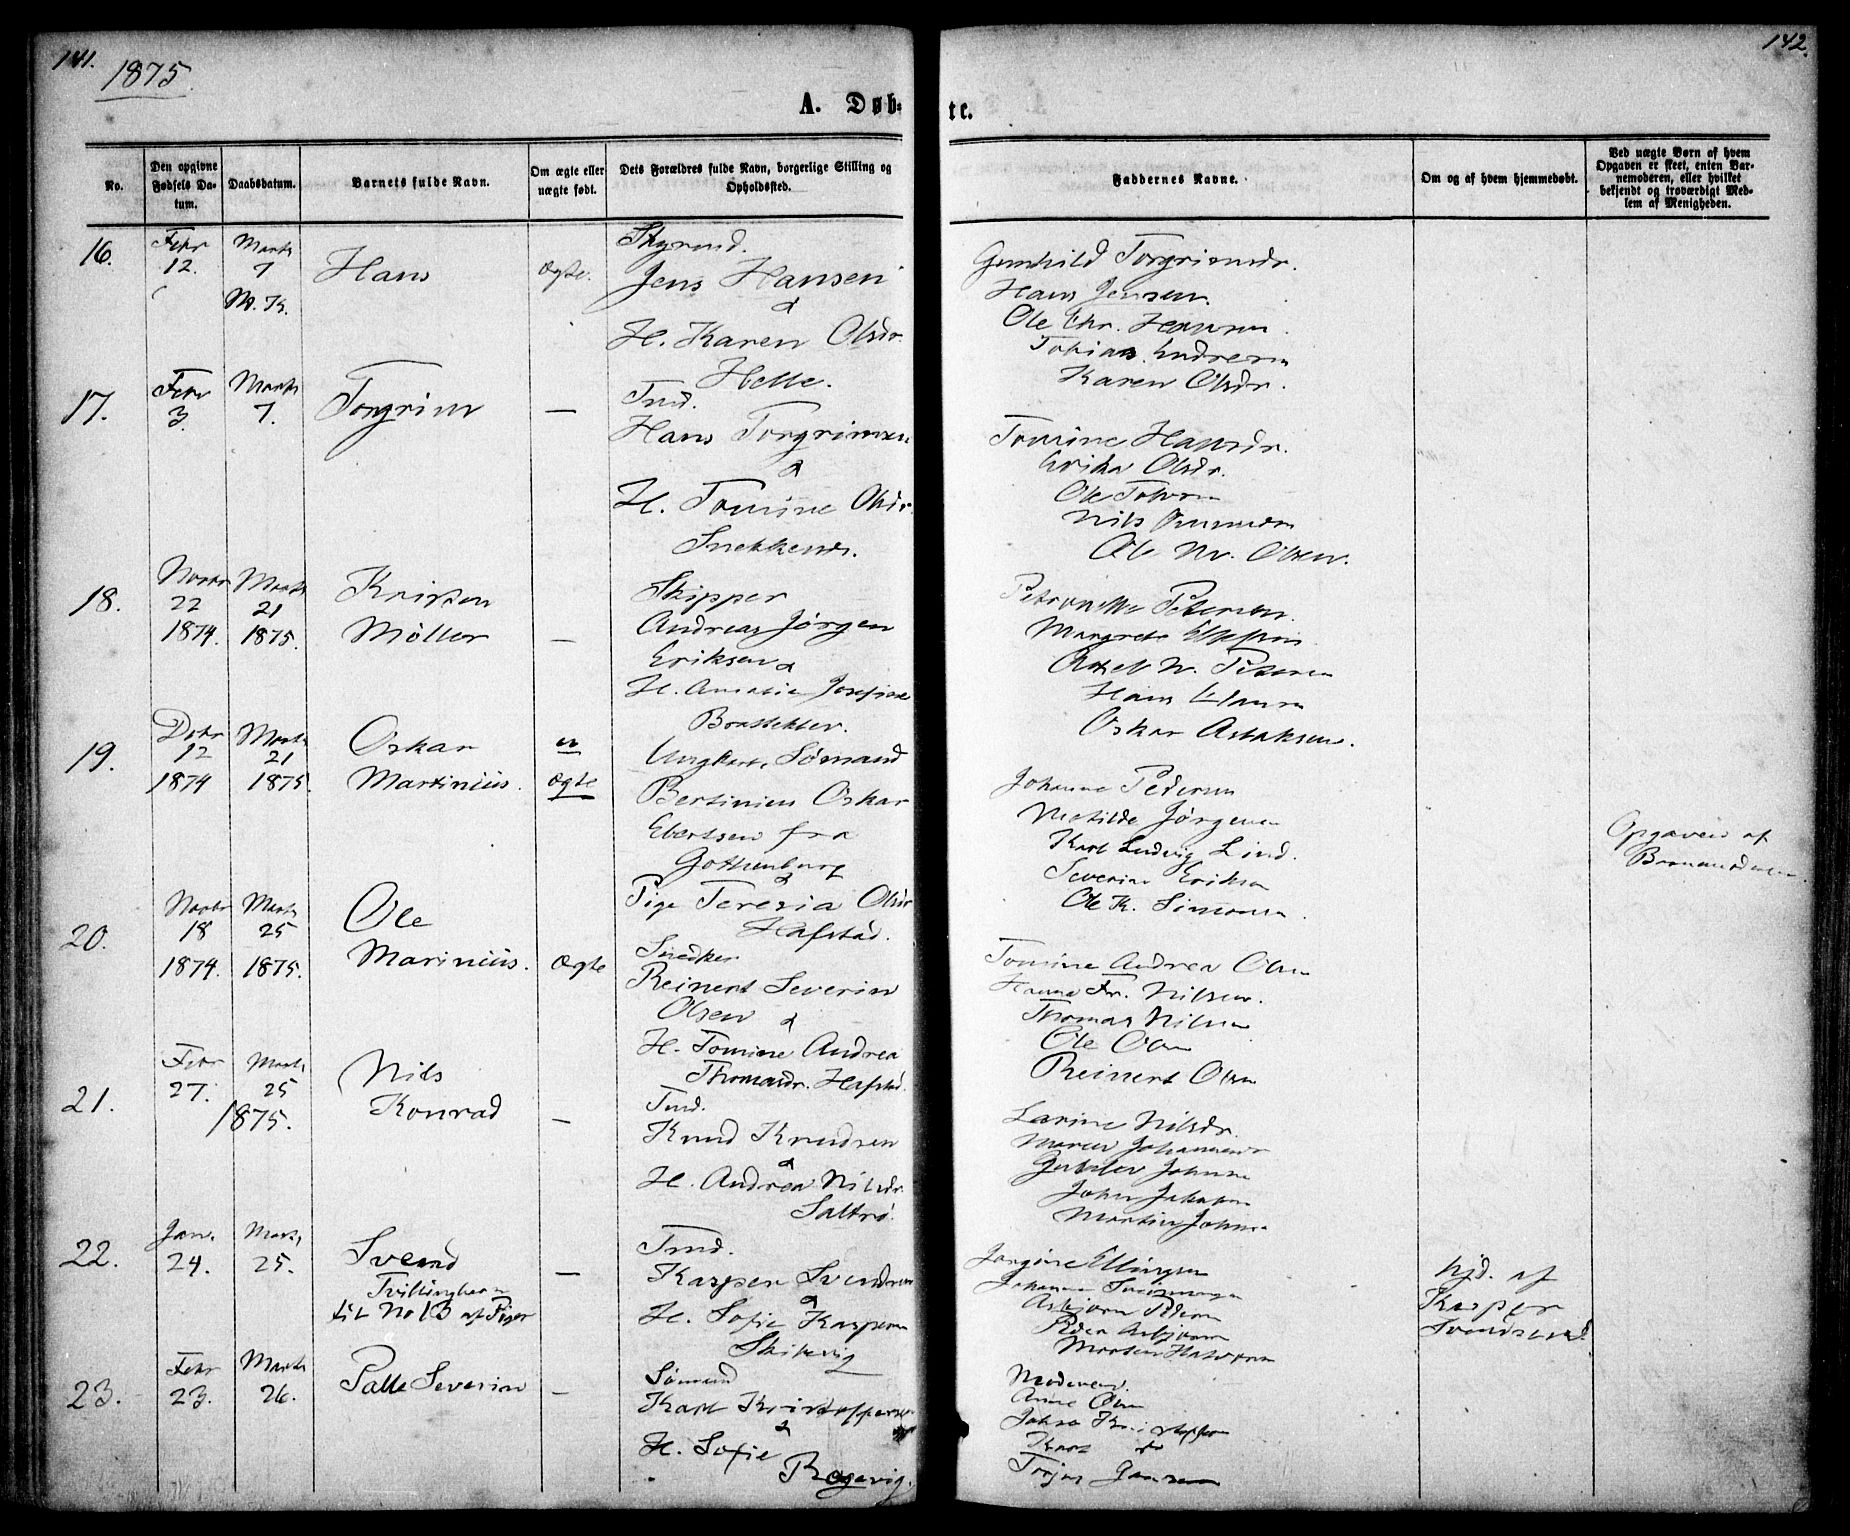 141.
1875.
142.
A. Døb-
te.
No.
Den opgivne Fødsels Datum.
Daabsdatum.
Barnets fulde Navn.
Om ægte eller uægte født.
Dets Forældres fulde Navn, borgerlige Stilling og Opholdssted.
Faddernes Navne.
Om og af hvem hjemmedøbt.
Ved uægte Børn af hvem Opgaven er skeet, enten Barnemoderen, eller hvilket bekjendt og troværdigt Medlem af Menigheden.
16.
Febr
12.
Marts
7
M. K.
Hans
Ægte.
Jens Hansen
&
H. Karen Olsdr.
Helle.
Gunhild Torgrimsdr.
Hans Jensen.
Ole Chr. Hansen
Tobias Endresen
Karen Olsdr.
17.
Febr
3.
Marts
7.
Torgrim
—
Tmd.
Hans Torgrimsen
&
H. Tomine Olsdr.
Tomine Hansdr.
Ole
Nils
Ole Olsen.
18.
Novbr
22
1874.
Marts
21
1875.
Kristen
Møller
—
Skipper
Andreas Jørgen
Eriksen &
H. Amalie Josefine
Petersen.
Margrete
Axel W. Petersen
Hans
Oskar Aslaksen.
19.
Debr
12
1874
Marts
21
1875.
Oskar
Martinius.
u
ægte
Ungkarl, Sømand
Bertinius Oskar
Ebertsen fra
Gothenburg
&
Pige Teresia Olsdr
Hafstad.
Johanne Pedersen
Matilde Jørgensen
Karl Ludvig Lind.
Severine Eriksen
Ole K. Simonsen.
Opgaven af
Barnemoderen.
20.
Novbr
18
1874.
Marts
25
1875.
Ole
Marinius.
Ægte
Snedker
Reinert Severin
Olsen &
H. Tomine Andrea
Thomasdr. Hafstad.
Tomine Andrea Olsen
Hanna Fr. Nilsen.
Thomas Nilsen
Ole Olsen
Reinert Olsen
21.
Febr
27.
Marts
25
1875.
Nils
Konrad
—
Tmd.
Knud Knudsen
&
H. Andrea Nilsdr.
Saltrø.
Larine Nilsdr.
Johannesdr
Johnsen
John Jakobsen
Martin Johnsen
22.
Jan.
24.
Marts
25.
Svend
Tvillingbarn
til No 13 af Piger
—
Tmd.
Kasper Svendsen
&
H. Sofie Kaspersen
Skibevig
Jorgine Ellingsen
Johanne
Asbjørn Pedersen
Peder Asbjørnsen
Morten Halvorsen
hjd. af
Kasper
Svendsen.
23.
Febr
23.
Marts
26.
Palle Severin
—
Sømand
Karl Kristoffersen
&
H. Sofie
Ragevig.
Moderen.
Anne Olsen
Jakob Kristoffersen
Karl do
Terjus Gunsen